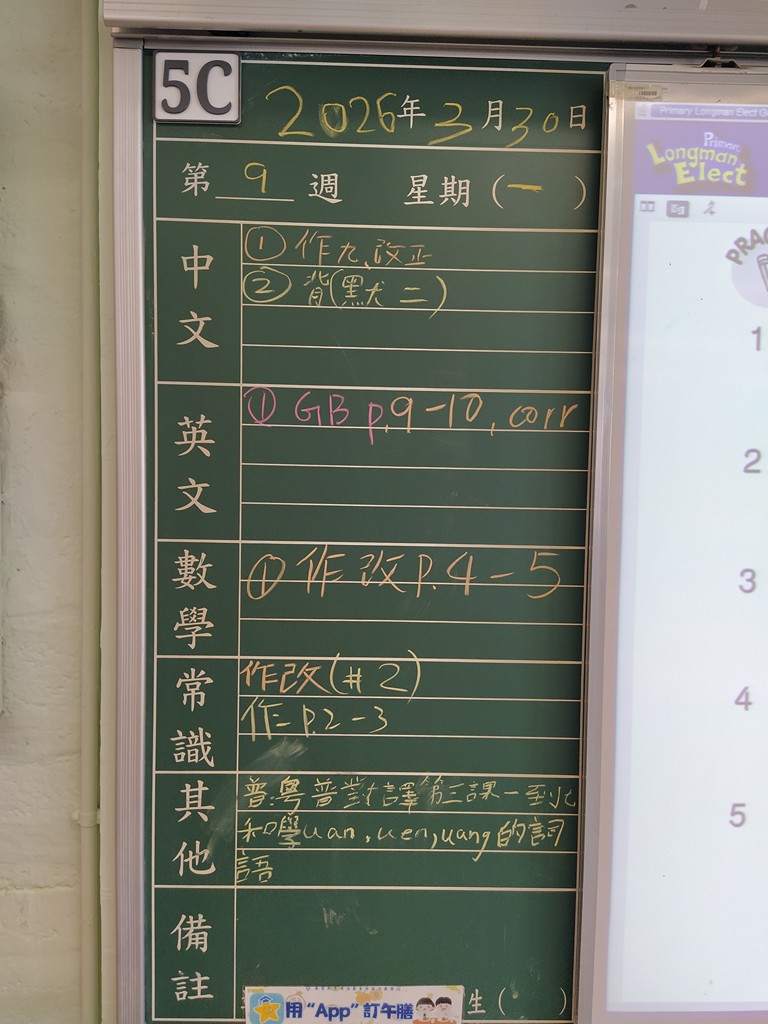 5C
2026年3月30日
第 9 週 星期(一)
中文
① 作九、改正
② 背(默二)
英文
① GB p.9-10, corr
數學
① 作改P.4-5
常識
作改(#2)
作二P.2-3
其他
普:粵普對譯第三課一至
和學uan,uen,uang的詞
語
備註
用“App”訂午膳
生( )
Primary Longman Elect
Primary
Longman
Elect
PRAC
1
2
3
4
5